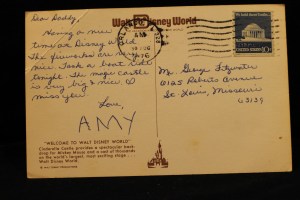 Dear Daddy,
Having a nice
time at Disney World
The fireworks are very
nice. Took a boat ride
tonight. The magic castle
is very big & nice. I
miss you!
Love,
AMY
"WELCOME TO WALT DISNEY WORLD"
Cinderella Castle provides a spectacular back-
drop for Mickey Mouse and a cast of thousands
on the world's largest, most exciting stage . . .
Walt Disney World.
Walt Disney World
AM
1976
10c
Mr. George
6125 Roberts Avenue
St. Louis, Missouri
63139